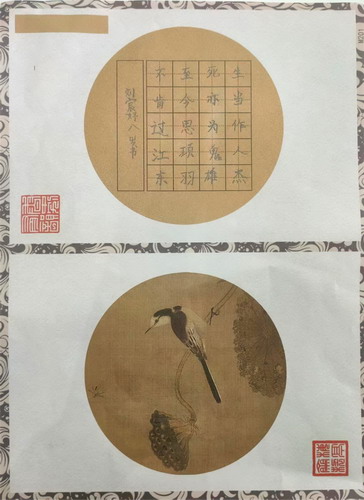 生当作人杰
死亦为鬼雄
至今思项羽
不肯过江东
八岁书